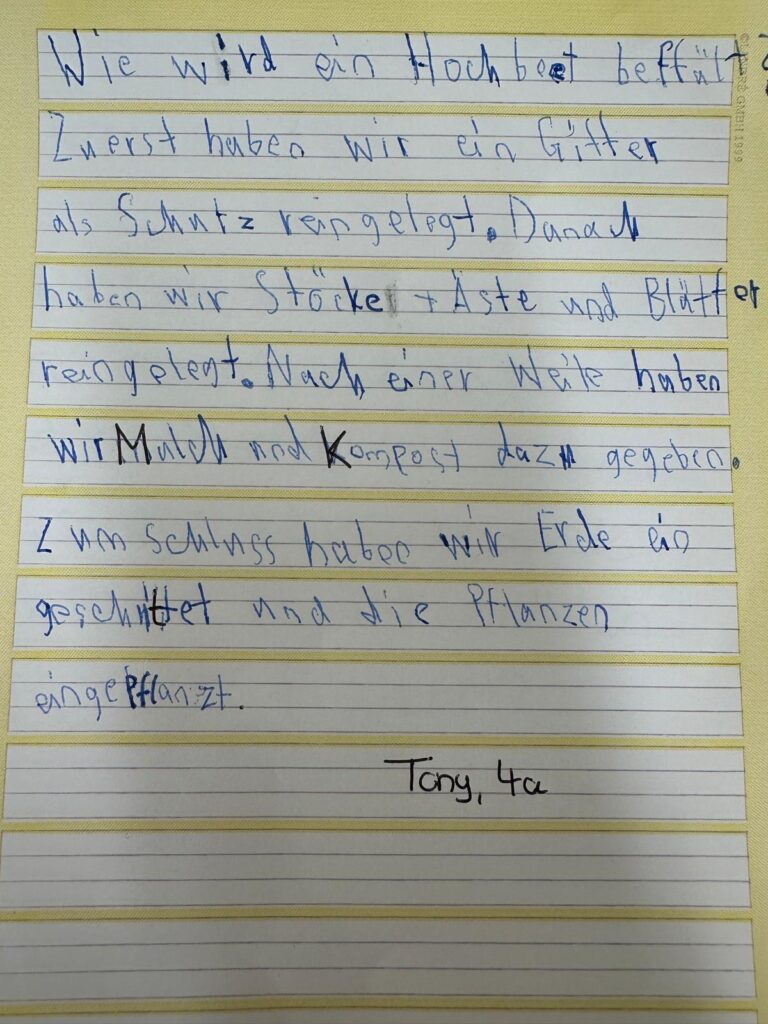 Wie wird ein Hochbeet beffült?
Zuerst haben wir ein Gitter
als Schutz reingelegt. Danach
haben wir Stöcke + Äste und Blätter
reingelegt. Nach einer Weile haben
wir Mulch und Kompost dazu gegeben.
Zum schluss haben wir Erde ein
geschüttet und die Pflanzen
eingepflanzt.
Tony, 4a